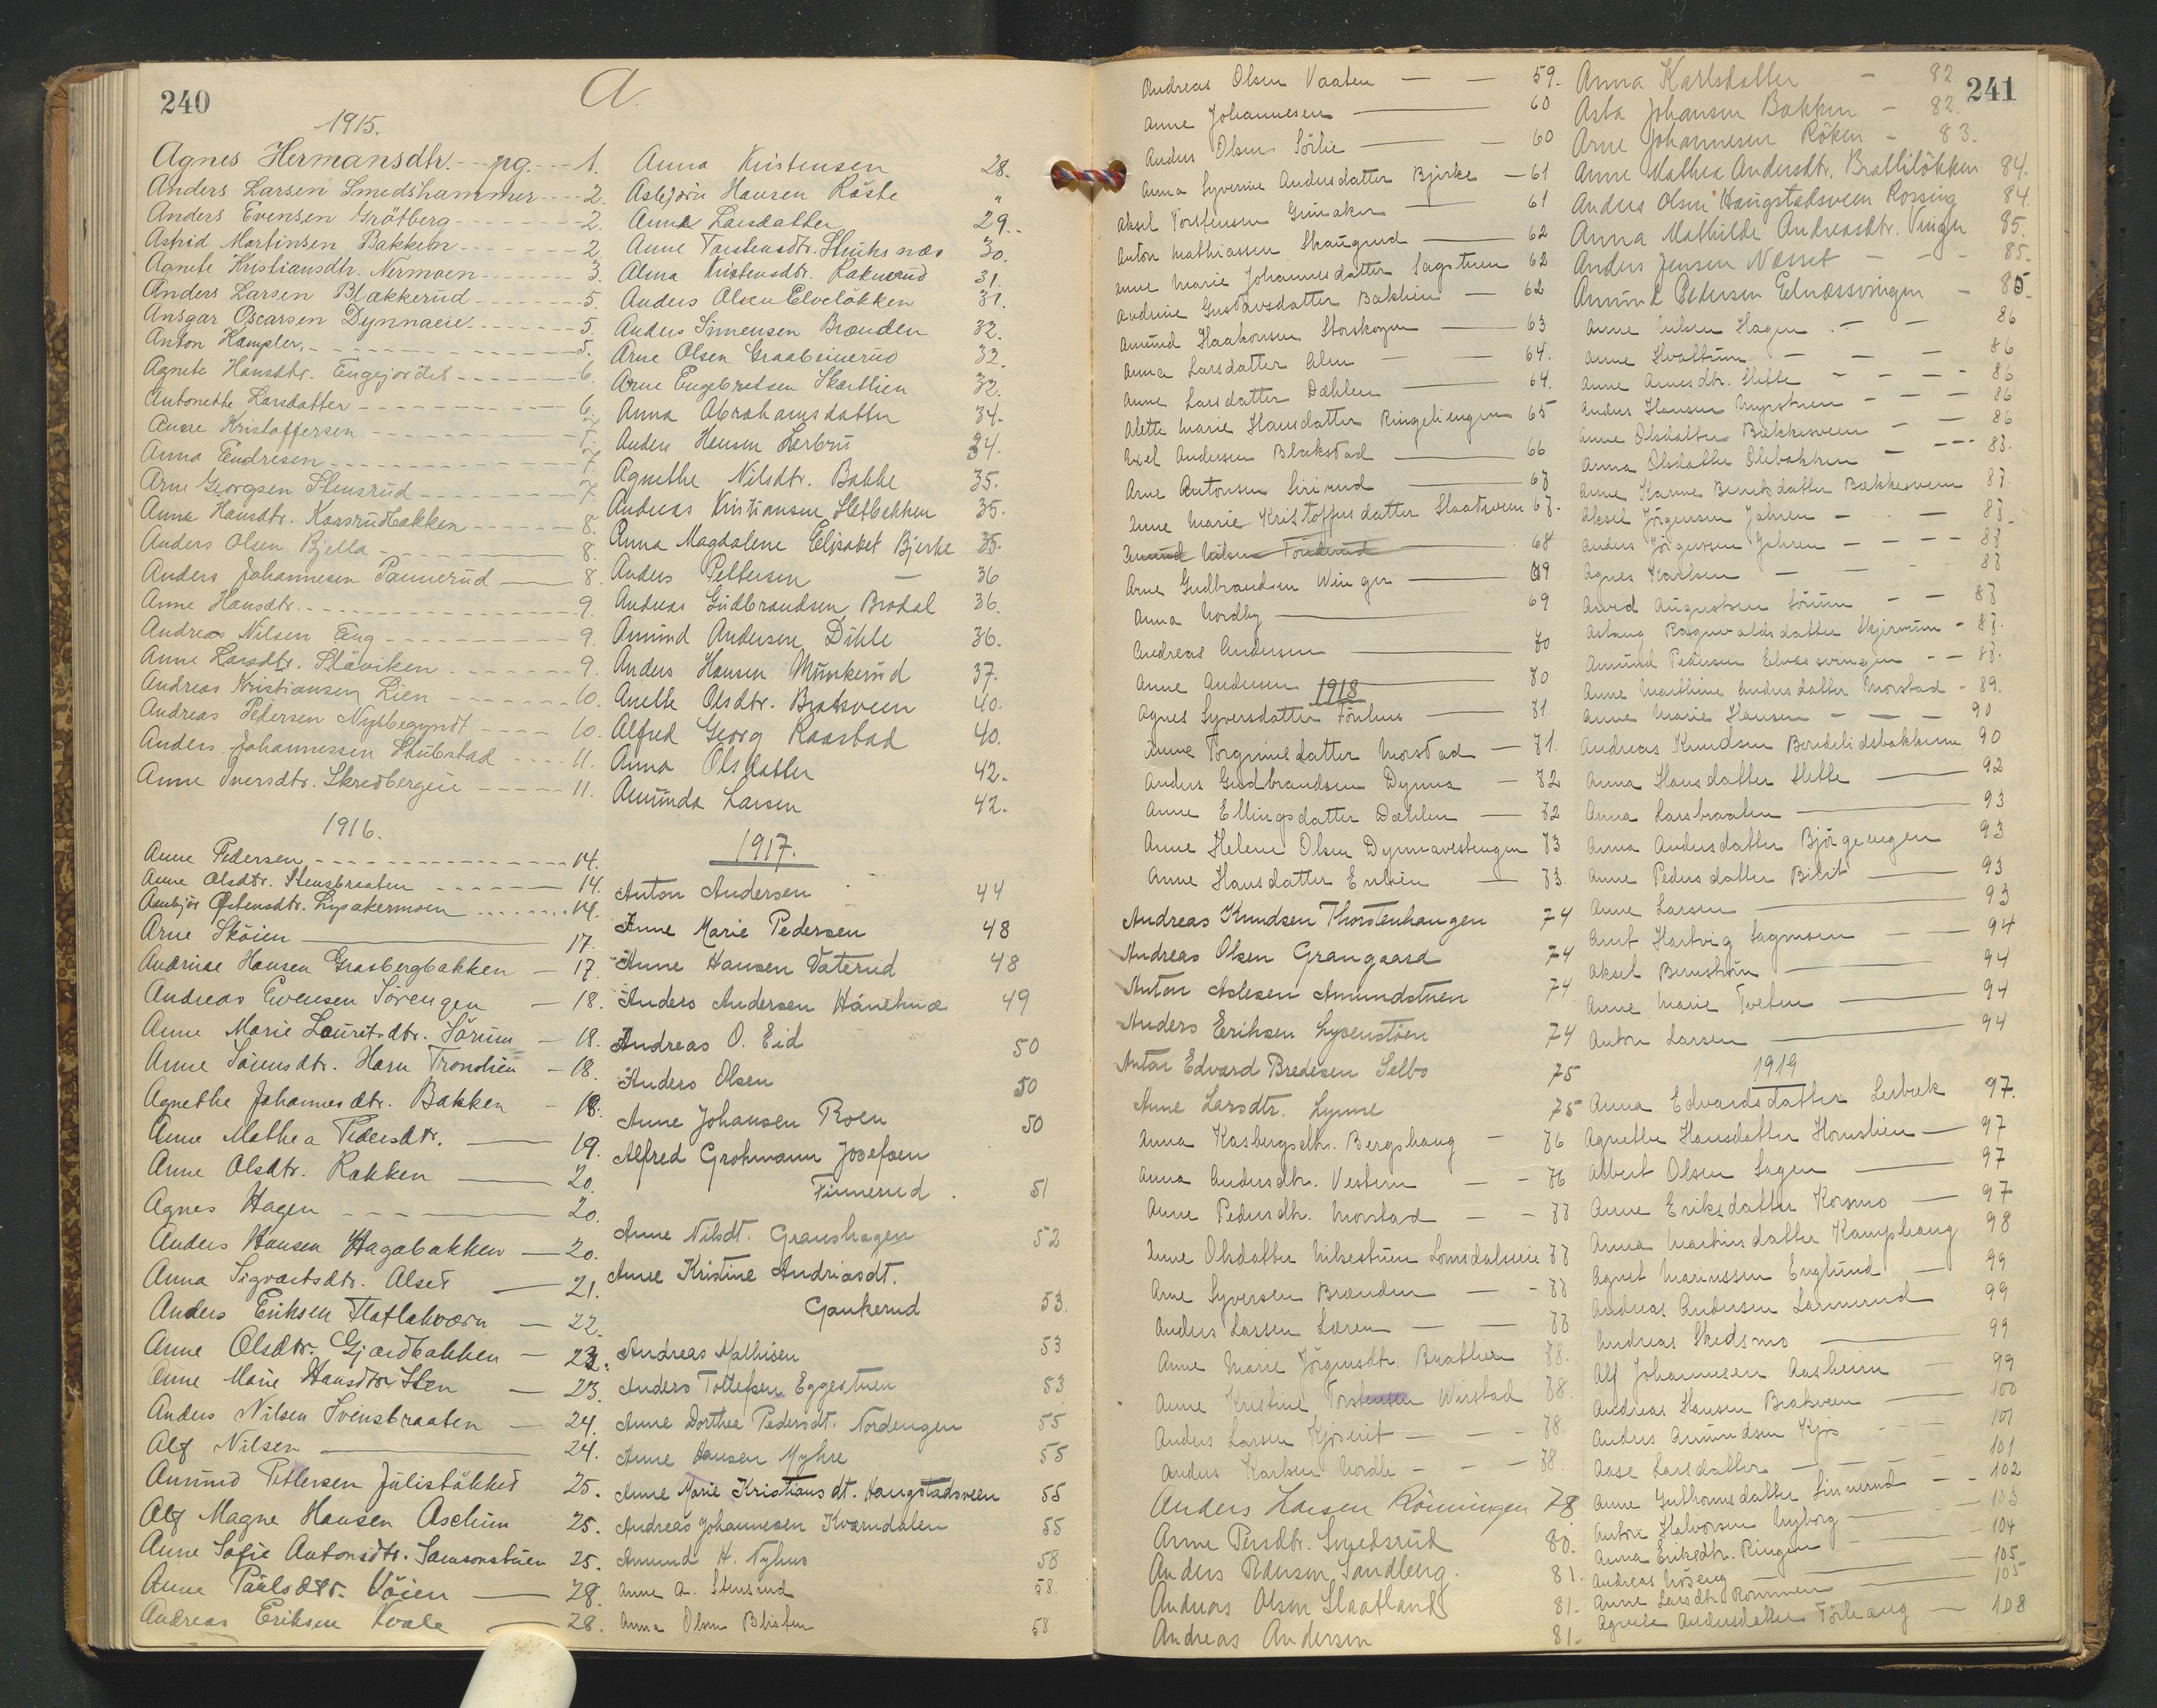 240
A.
1915.
Agnes Hermansdtr. pg. 1.
Anders Larsen Smedshammer 2.
Anders Evensen Grötberg 2.
Astrid Martinsen Bakken 2.
Agnete Kristiansdtr. Nermoen 3.
Anders Larsen Blakkerud 5.
Ansgar Oscarsen Dynnaeie 5.
Anton Kampler. 5.
Agnete Hansdtr. Engejordet 6.
Antonette Larsdatter 6.
Anne Kristoffersen 7.
Anna Endresen 7.
Arne Georgsen Stensrud 7.
Anna Hansdtr. Kaasrudbakken 8.
Anders Olsen Bjella 8.
Anders Johannesen Pannerud 8.
Anne Hansdtr. 9.
Andreas Nilsen Eng 9.
Anne Larsdtr. Stäviken 9.
Andreas Kristiansen Lien 10.
Andreas Pedersen Nysbegyndt 10.
Anders Johannessen Stubstad 11.
Anne Iversdtr. Skredbergeie 11.
1916.
Anne Pedersen 14.
Anne Olsdtr. Stensbraaten 14.
Ambjör Østensdtr. Lysakermoen 14.
Arne Sköien 17.
Andrine Hansen Grasbergbakken 17.
Andreas Evensen Sörengen 18.
Anne Marie Lauritsdtr. Sörum 18.
Anne Sörensdtr. Horn Tronslien 18.
Agnethe Johannesdtr. Bakken 18.
Anne Mathea Pedersdtr. 19.
Anne Olsdtr. Rakken 20.
Agnes Hagen 20.
Anders Hansen Hagabakken 20.
Anna Sigvartsdtr. Alset 21.
Anders Eriksen Flatlakværn 22.
Anne Olsdtr. Gjærdbakken 22.
Anne Marie Hansdtr. Sten 23.
Anders Nilsen Svensbraaten 24.
Alf Nilsen 24.
Amund Pettersen Julistökket 25.
Alf Magne Hansen Aschim 25.
Anne Sofie Antonsdtr. Samsonstuen 25.
Anne Paulsdtr. Vöien 28.
Andreas Eriksen Kvale 28.
Anna Kristensen 28.
Asbjörn Hansen Röste "
Anna Larsdatter 29.
Anne Torstensdtr. Stuksnæs 30.
Alma Kristensdtr. Raknerud 31.
Anders Olsen Elvelökken 31.
Anders Simensen Brænden 32.
Arne Olsen Graabeinerud 32.
Arne Engebretsen Skartlien 32.
Anna Abrahamsdatter 34.
Anders Hansen Lerbru 34.
Agnethe Nilsdtr. Bakke 35.
Andreas Kristiansen Sletbekken 35.
Anna Magdalene Elisabet Bjerke 35.
Anders Pettersen 36
Andreas Gudbrandsen Brodal 36.
Amund Andersen Dihle 36.
Anders Hansen Munkerud 37.
Anette Olsdtr. Bratsveen 40.
Alfred Georg Raastad 40.
Anna Olsdatter 42.
Amunda Larsen 42.
1917.
Anton Andersen 44
Anne Marie Pedersen 48
Anne Hansen Vaterud 48
Anders Andersen Hänekne 49
Andreas O. Eid 50
Anders Olsen 50
Anne Johansen Roen 50
Alfred Grohmann Josefsen
Finnerud. 51
Anne Nilsdt. Granshagen 52
Anne Kristine Andriasdt.
Gaukerud 53.
Andreas Mathisen 53
Anders Tollefsen Eggestuen 53
Anne Dorthea Pedersdt. Nordengen 55
Anne Hansen Myhre 55
Anne Marie Kristiansdt. Haugstadsveen 55
Andreas Johannesen Kværndalen 55
Amund H. Nyhus 58
Anne A. Stensrud 58.
Anna Olsen Blisten 58
Andreas Olsen Vaaten 59.
Anne Johannesen 60
Anders Olsen Sörlie 60
Anna Syverine Andersdatter Bjerke 61
Aksel Torstensen Grinaker 61
Anton Mathiassen Skaugrud 62
Anne Marie Johannesdatter Sagstuen 62
Andrine Gustavsdatter Bakkien 62
Amund Haakonsen Storskogen 63
Anna Larsdatter Alm 64.
Anne Larsdatter Dæhlen 64.
Alette Marie Hansdatter Ringeliengen 65
Axel Andersen Blakstad 66
Arne Antonsen Sirirud 67
Anne Marie Kristoffersdatter Slaatsveen 67.
68
Arne Gudbrandsen Winger 69
Anna Nordby 69
Andreas Andersen 70
Anne Andersen 70
1918
Agnes Syversdatter Fönhus 71.
Anne Torgrimsdatter Morstad 71.
Anders Gudbrandsen Dynna 72
Anne Ellingsdatter Dæhlen 72
Anne Helene Olsen Dynnavestengen 73
Anne Hansdatter Enlien 73.
Andreas Knudsen Thorstenhaugen 74
Andreas Olsen Grangaard 74
Anton Aslesen Amundstuen 74
Anders Eriksen Lysenstöen 74
Anton Edvard Bredesen Selbo 75
Anne Larsdtr. Lynne 75
Anna Kasbergsdtr. Bergshaug 76
Anna Andersdtr. Vestern 76
Anne Pedersdtr. Morstad 77
Anne Olsdatter Nikestuen Lomsdalseie 77
Arne Syversen Brænden 77
Anders Larsen Læren 77
Anne Marie Jörgensdtr. Bratlien 78.
Anne Kristine Torstensen Wirstad 78.
Anders Larsen Kjöseit 78.
Anders Karlsen Nordli 78.
Anders Larsen Rönningen 78.
Anne Persdtr. Smedsrud 80.
Anders Pedersen Sandberg. 81.
Andreas Olsen Slaatland 81.
Andreas Andersen 81.
241
Anna Karlsdatter 82.
Asta Johansen Bakken 82.
Arne Johannesen Röken 83.
Anne Mathea Andersdtr. Brattlilökken 84.
Anders Olsen Haugstadsveen Rossing 84.
Anna Mathilde Andreasdtr. Vinger 85.
Anders Jensen Næsset 85.
Amund Pedersen Elvæssvingen 85.
Anne Nilsen Hagen 86
Anne Hvattum 86
Anne Arnesdtr. Slette 86
Anders Hansen Myrstuen 86
Anne Olsdatter Bakkesveen 86
Anna Olsdatter Olebakken 87.
Anne Karine Berntsdatter Bækkesveen 87.
Aksel Jörgensen Jahren 87
Anders Jörgensen Jahren 87
Agnes Karlsen 87
Arvid Augustsen Sörum 87
Aslaug Ragnvaldsdatter Skjervum 87.
Amund Pedersen Elvæssvingen 87.
Anne Marthine Andersdatter Morstad 89.
Anne Marie Hansen 90
Andreas Knudsen Bondelidsbakken 90
Anna Hansdatter Slette 92
Anna Larsbraaten 93
Anna Andersdatter Björgeengen 93
Anne Pedersdatter Bilit 93
Anne Larsen 93
Arnt Hartvig Sagmoen 94
Aksel Bernström 94
Anne Marie Tveten 94
Anton Larsen 94
1919
Anna Edvardsdatter Lerbæk 97.
Agnethe Hansdatter Homslien 97
Albert Olsen Sagen 97
Anne Eriksdatter Korsmo 97
Anna Martinsdatter Kamphaug 98
Agnet Marinussen Englund 99
Andreas Andersen Lannerud 99
Andreas Skedsmo 99
Alf Johannesen Aasheim 99
Andreas Hansen Brakveen 100
Anders Amundsen Kjös 101
Aase Larsdatter 101
Anne Guthormsdatter Linnerud 102
Anton Halvorsen Nyborg 103
Anna Eriksdtr. Ringen 104
Andreas Möseng 105
Anne Larsdtr. Rommen 105
Agnete Andersdatter Törhaug 108